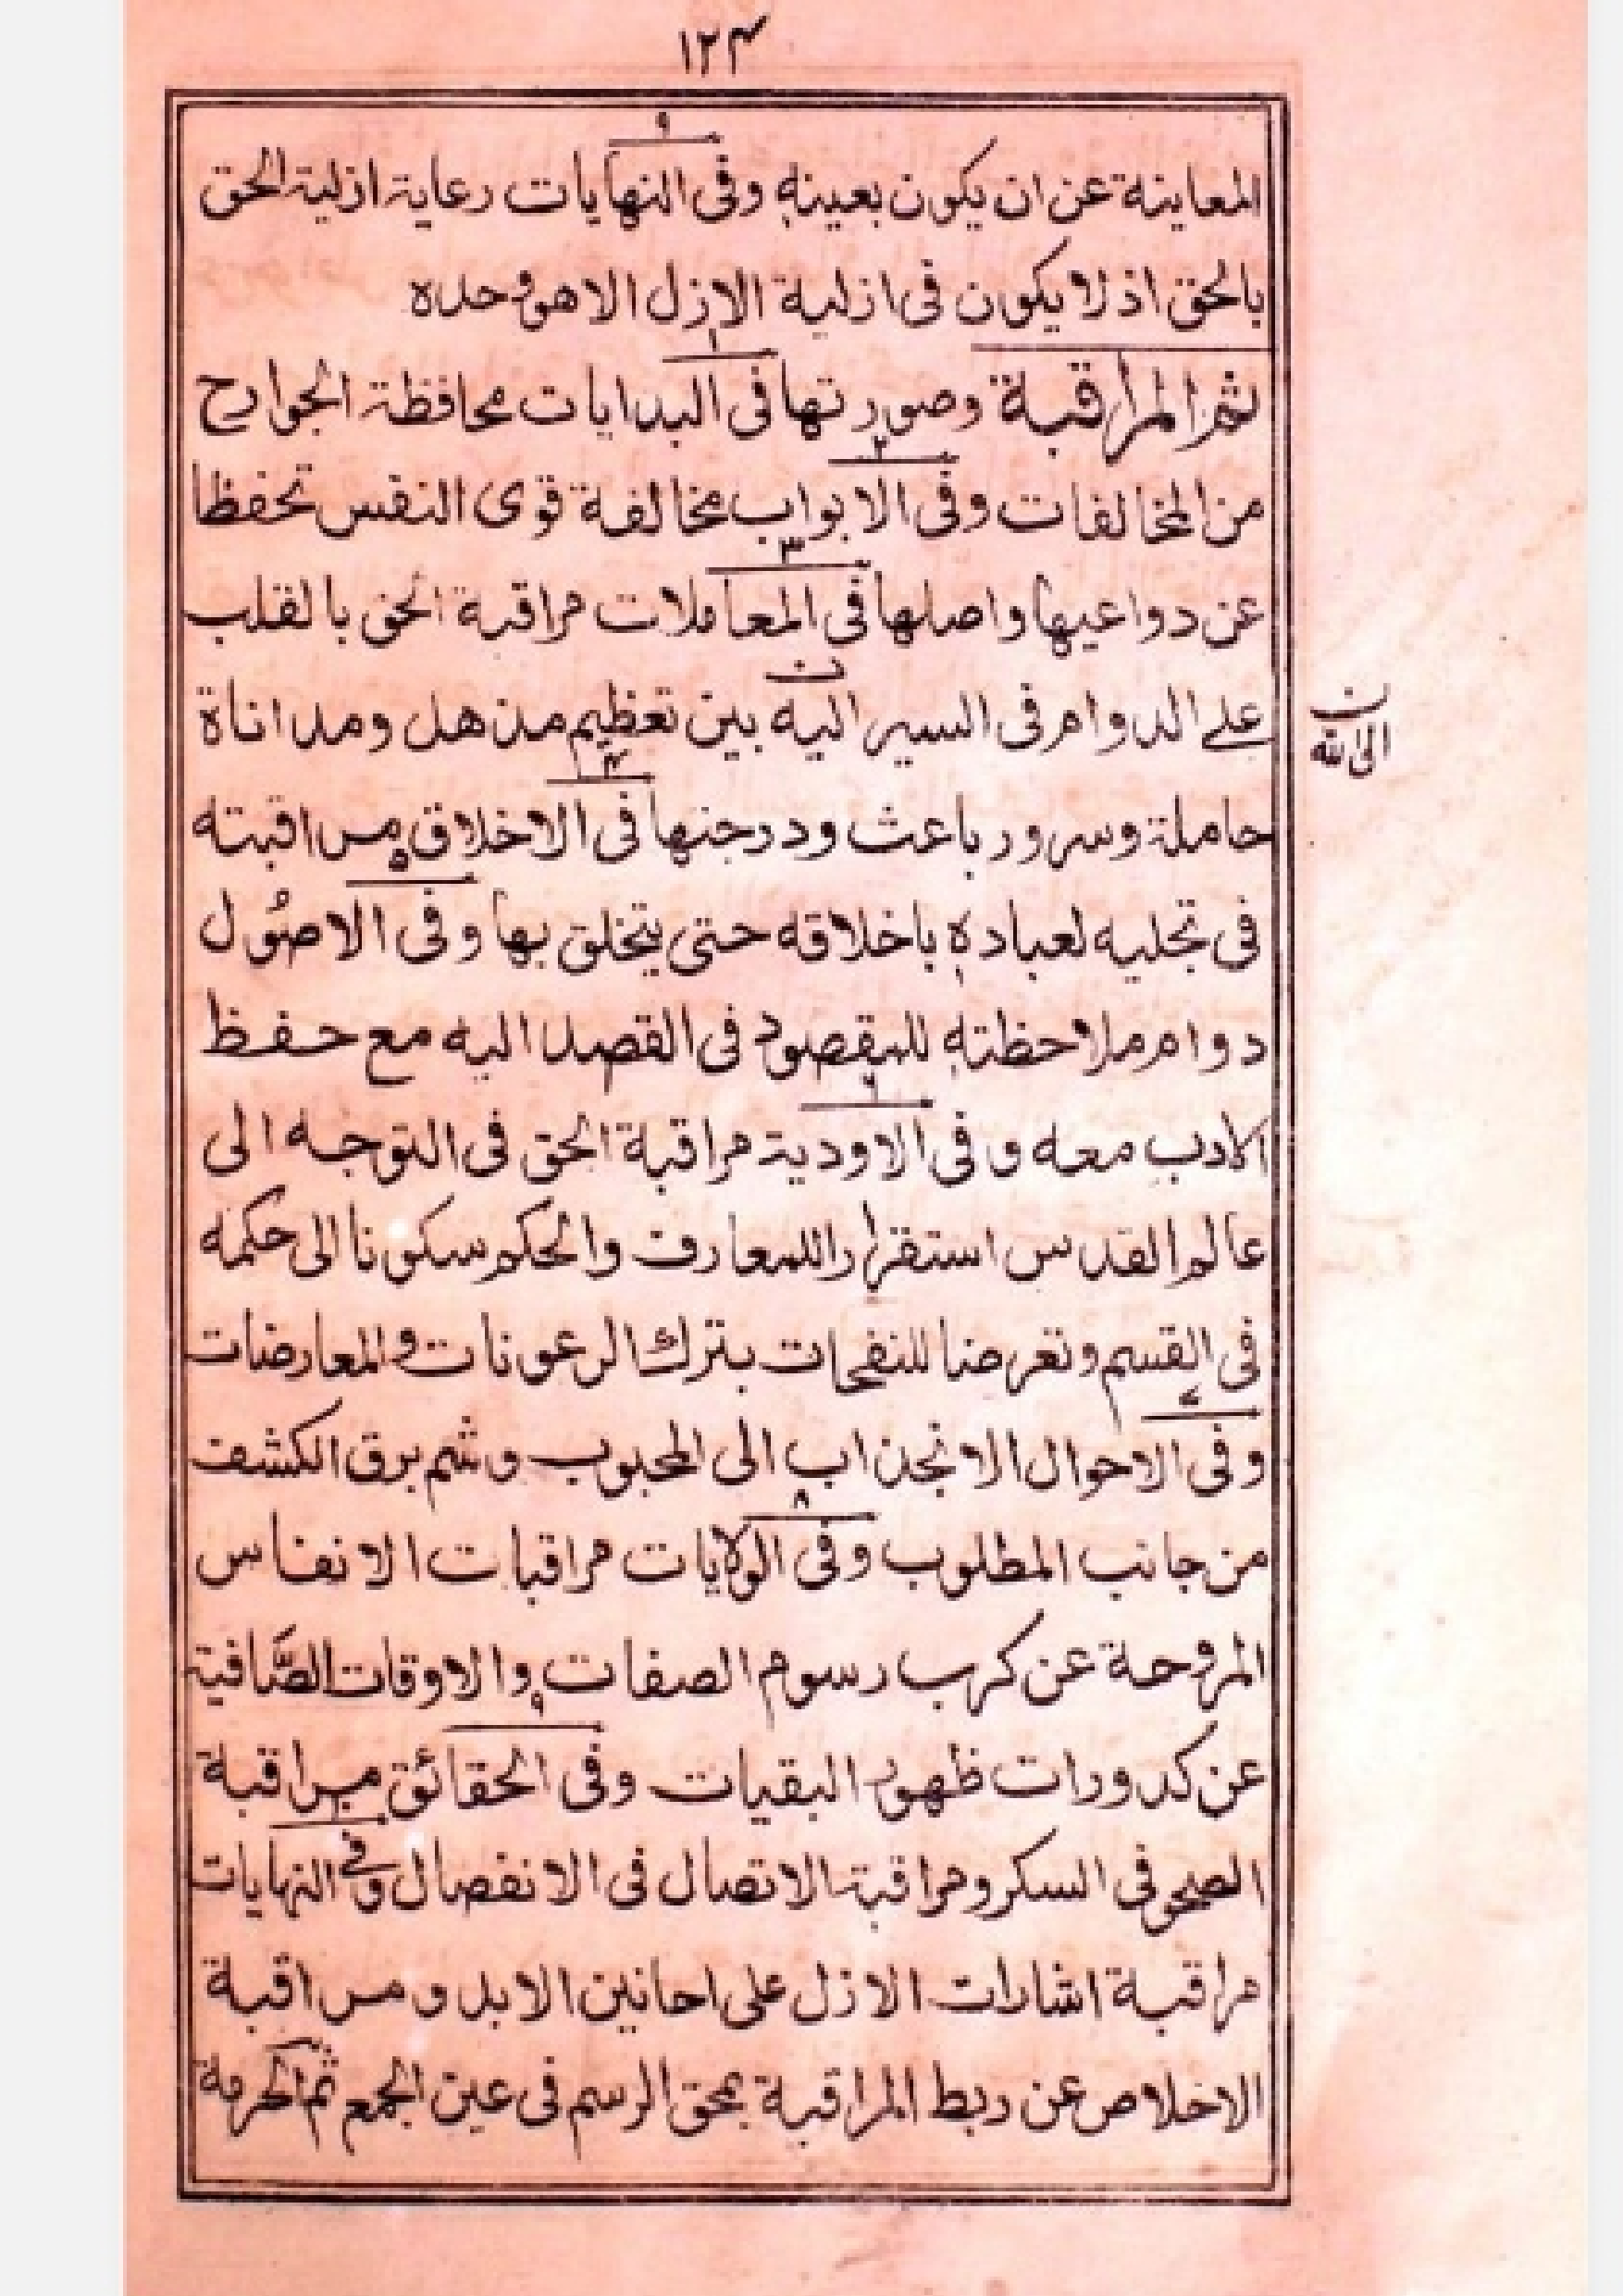 ١٢٤
٩
المعاينة عن ان يكون بعينه وفى النهايات رعاية ازلية الحق
بالحق اذ لا يكون فى ازلية الازل الا هو وحده
١
ثم المراقبة وصورتها فى البدايات محافظة الجوارح
٢
من المخالفات وفى الابواب مخالفة قوى النفس تحفظا
٣
عن دواعيها واصلها فى المعاملات مراقبة الحق بالقلب
ن
على الدوام فى السير اليه بين تعظيم مذهل ومداناة
ن
الى الله
٤
حاملة وسرور باعث ودرجتها فى الاخلاق مراقبته
٥
فى تجليه لعباده باخلاقه حتى يتخلق بها وفى الاصُول
دوام ملاحظته للمقصود فى القصد اليه مع حفظ
٦
الادب معه وفى الاودية مراقبة الحق فى التوجه الى
عالم القدس استقرارا للمعارف والحكم سكونا الى حكمه
فى القسم وتعرضا للنفحات بترك الرعونات والمعارضات
٧
وفى الاحوال الانجذاب الى المحبوب وشم برق الكشف
٨
من جانب المطلوب وفى الولايات مراقبات الانفاس
المروحة عن كرب رسوم الصفات والاوقات الصَّافية
٩
عن كدورات ظهور البقيات وفى الحقائق مراقبة
١٠
الصحو فى السكر ومراقبة الاتصال فى الانفصال وفى النهايات
مراقبة اشارات الازل على احانين الابد ومراقبة
الاخلاص عن ربط المراقبة بمحق الرسم فى عين الجمع ثم الحرمة